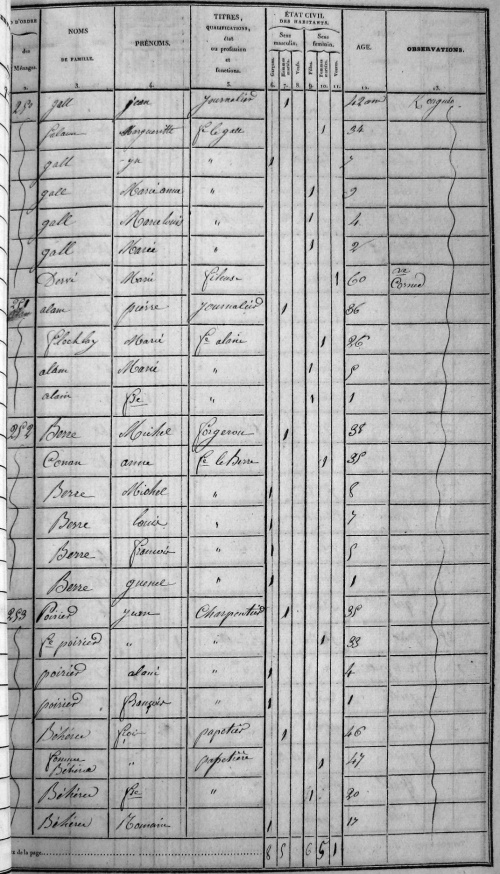 D'ORDRE des Ménages. 2.
NOMS DE FAMILLE. 3.
PRÉNOMS. 4.
TITRES, QUALIFICATIONS, état ou profession et fonctions. 5.
ÉTAT CIVIL DES HABITANTS.
Sexe masculin. Sexe féminin.
Garçons. 6. Hommes mariés. 7. Veufs. 8. Filles. 9. Femmes mariées. 10. Veuves. 11.
AGE. 12.
OBSERVATIONS. 13.
250 gall jean journalier 1 42 ans
Marguerite fe le gall 1 34
gall yn " 1 7
gall Marie anne " 1 9
gall Marie louise " 1 4
gall Marie " 1 2
Derré Marie fileuse 1 60
251 alain pierre journalier 1 36
Marie fe alain 1 26
alain Marie " 1 5
alain fse " 1 1
252 Berre Michel forgeron 1 38
Conan anne fe le Berre 1 35
Berre Michel " 1 8
Berre louis " 1 7
Berre françois " 1 5
Berre " 1 1
253 Poirier yvan Charpentier 1 35
fe poirier " " 1 33
poirier alain " 1 4
poirier François " 1 1
Béhérec papetier 1 46
femme Béhérec " papetière 1 47
Béhérec fse " 1 20
Béhérec Romain 1 17
de la page 8 5 6 5 1